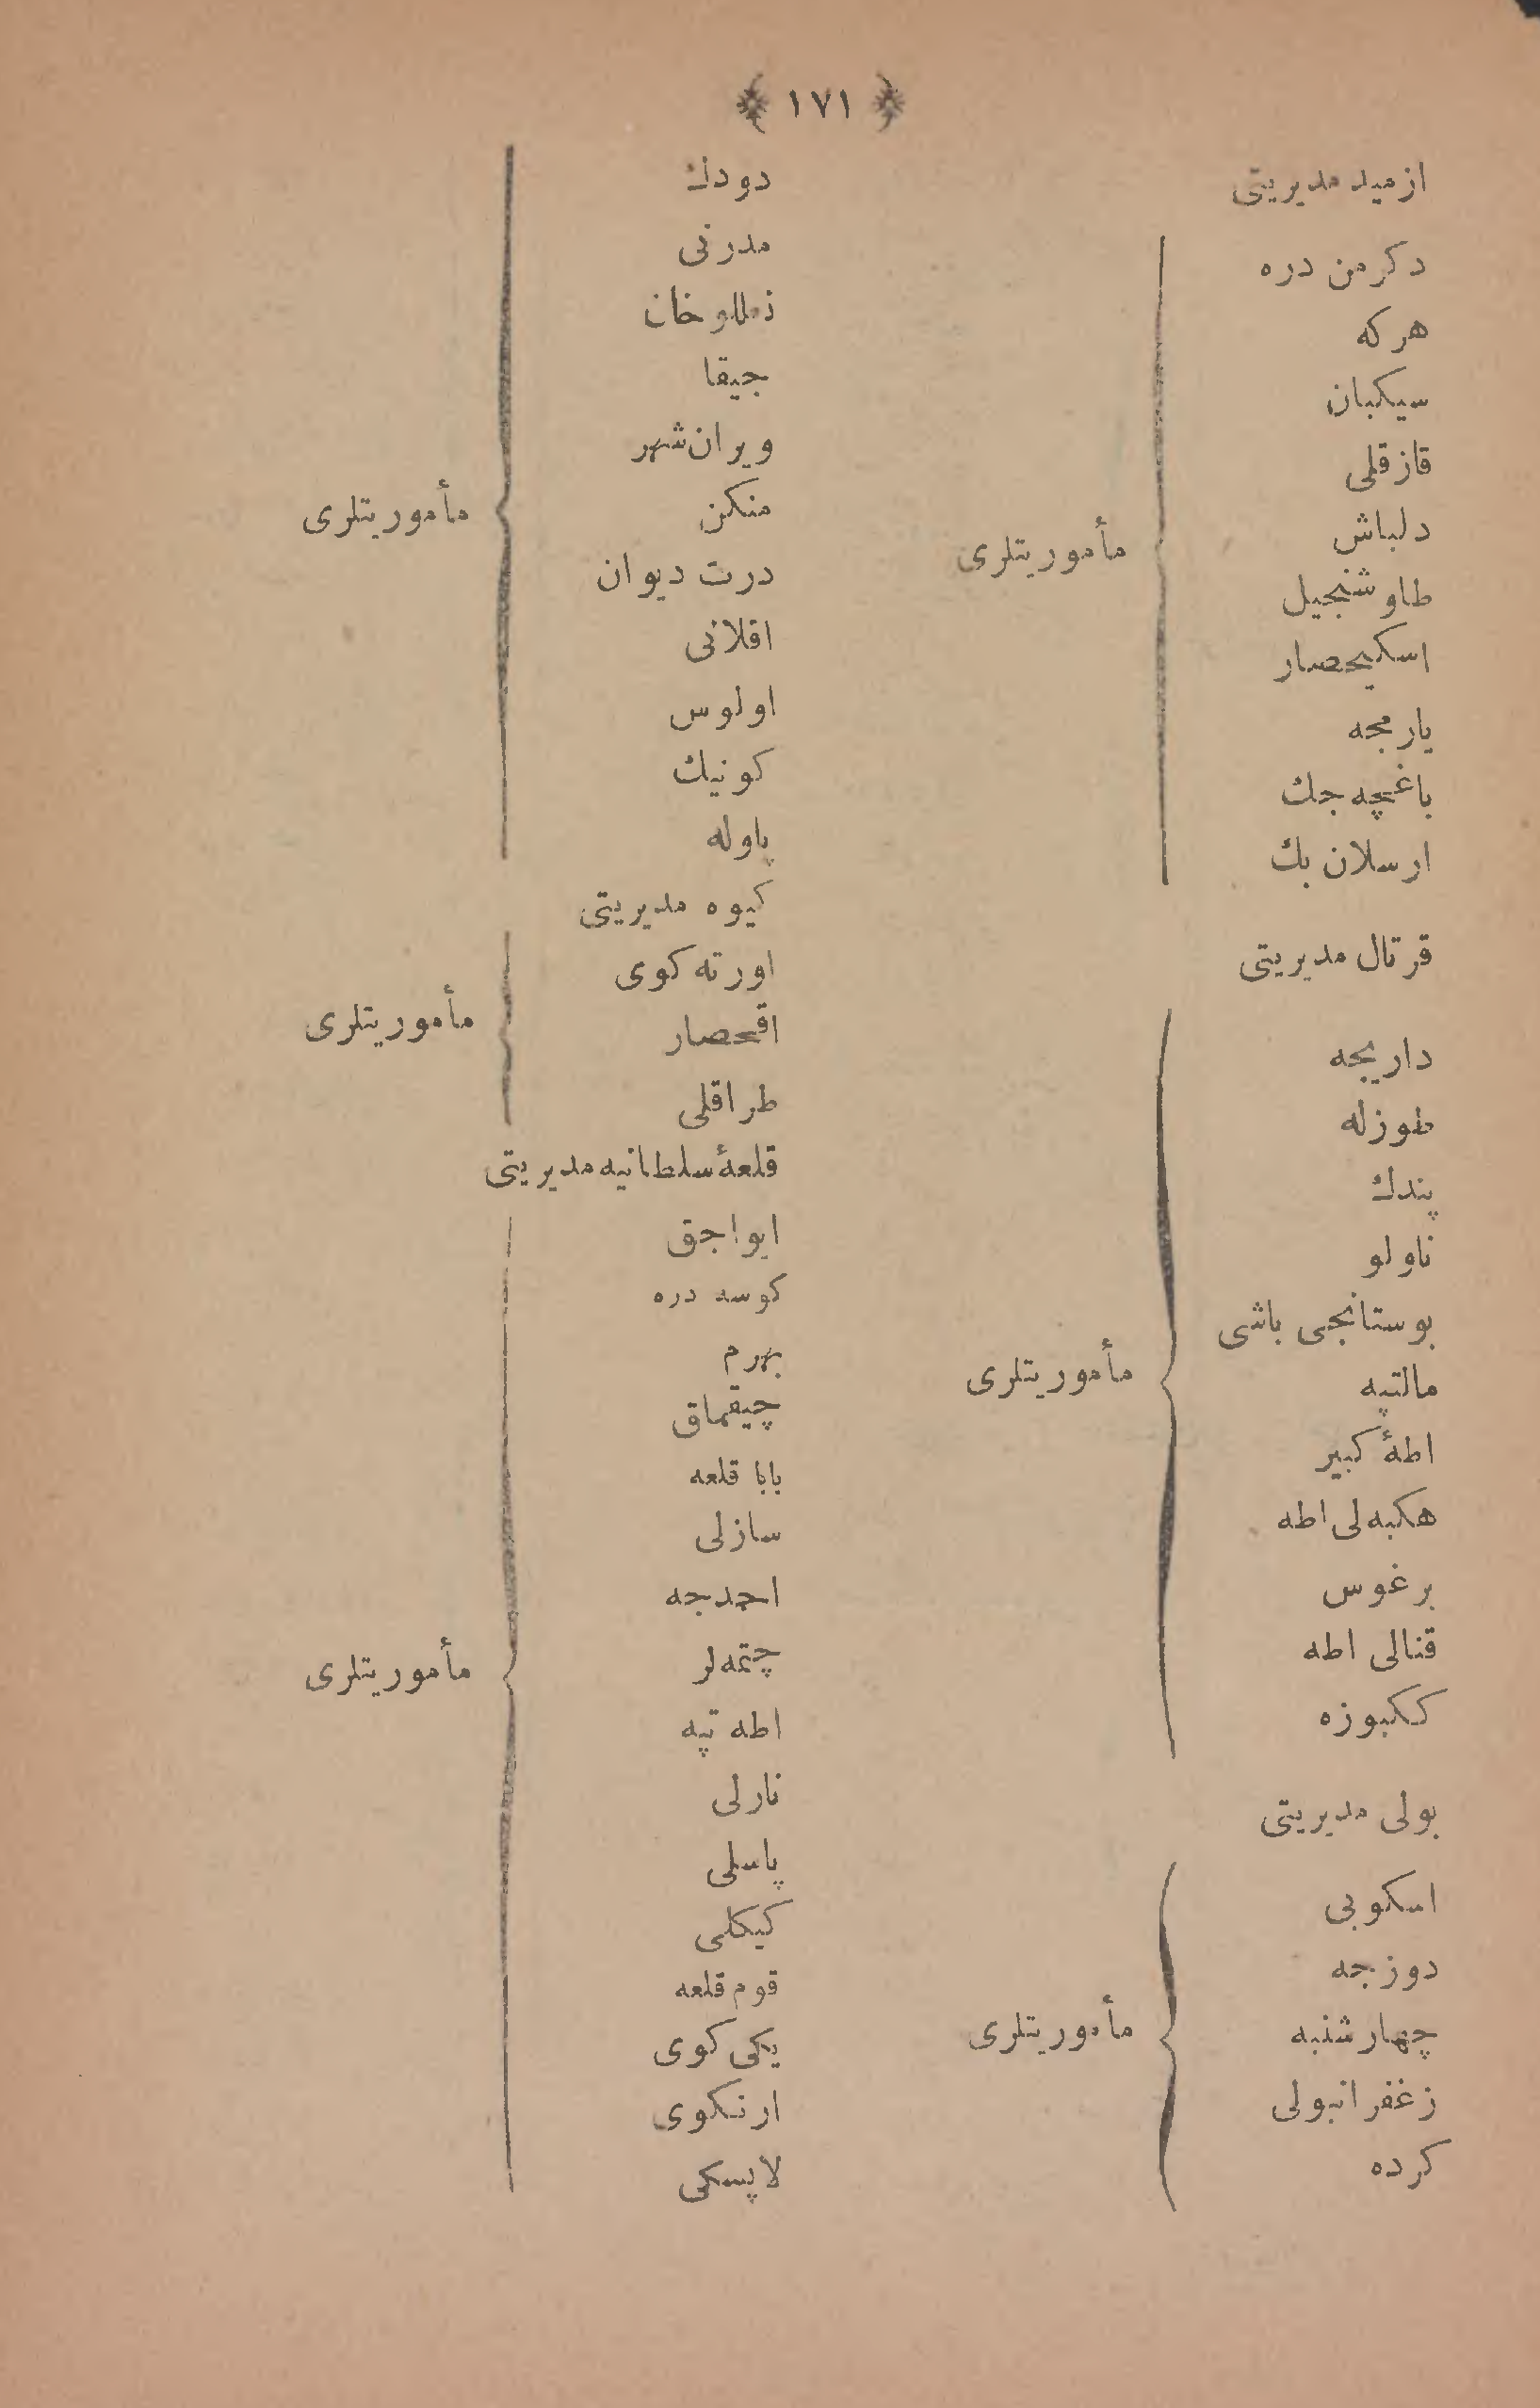 ١٧١
ازميد مديريتى
دكرمن دره
هركه
سيكبان
قازقلى
دلباش
طاوشنجيل
اسكيحصار
يارمجه
باغچه جك
ارسلان بك
مأموريتلرى
قرتال مديريتى
داريجه
طوزله
پندك
ناولو
بوستانجى باشى
مالتپه
اطهٔ كبير
هكبه لى اطه
برغوس
قنالى اطه
ككبوزه
مأموريتلرى
بولى مديريتى
اسكوبى
دوزجه
چهارشنبه
زغفرانبولى
كرده
مأموريتلرى
دودك
مدرنى
خان
جيقا
ويران شهر
منكن
درت ديوان
افلانى
اولوس
كونيك
پاوله
مأموريتلرى
كيوه مديريتى
اورته كوى
اقحصار
طراقلى
مأموريتلرى
قلعهٔ سلطانيه مديريتى
ايواجق
كوسه دره
بهرم
چيقماق
بابا قلعه
سازلى
احمدجه
چتمه لر
اطه تپه
نارلى
پاسلى
كيكلى
قوم قلعه
يكى كوى
ارنكوى
لاپسكى
مأموريتلرى